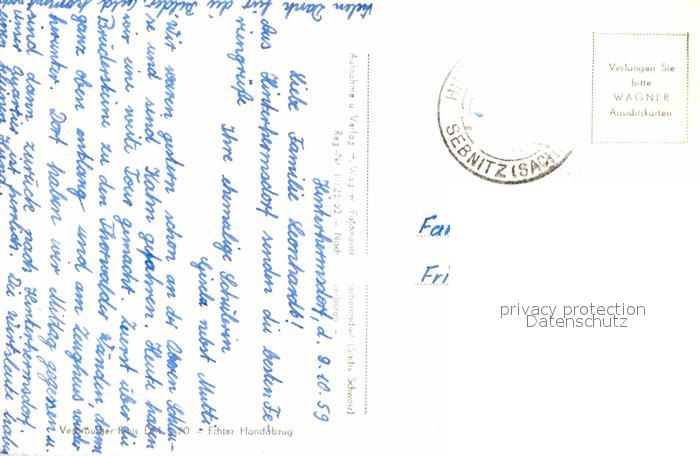 Hinterhermsdorf, d. 8.10.59
Liebe Familie Leonhardt!
Aus Hinterhermsdorf senden die besten Fe-
riengrüße Ihre ehemalige Schülerin
Gisela nebst Mutti.
Wir waren gestern schon an der Oberen Schleu-
se und sind Kahn gefahren. Heute haben
wir eine weite Tour gemacht. Zuerst über die
zu den Thorwalder Wänden, dann
ganz oben entlang und am Zeughaus wieder
herunter. Dort haben wir Mittag gegessen u.
sind dann zurück nach Hinterhermsdorf.
Unser Quartier ist herrlich. Die Wirtsleute haben
Vielen Dank für die Bilder
Aufnahme u. Verlag H. Wagner
Verbraucher-Preis DM 0,20 – Echter Handabzug
SEBNITZ (SACHS
Verlangen Sie
bitte
WAGNER
Ansichtskarten
Fam
Fri
privacy protection
Datenschutz